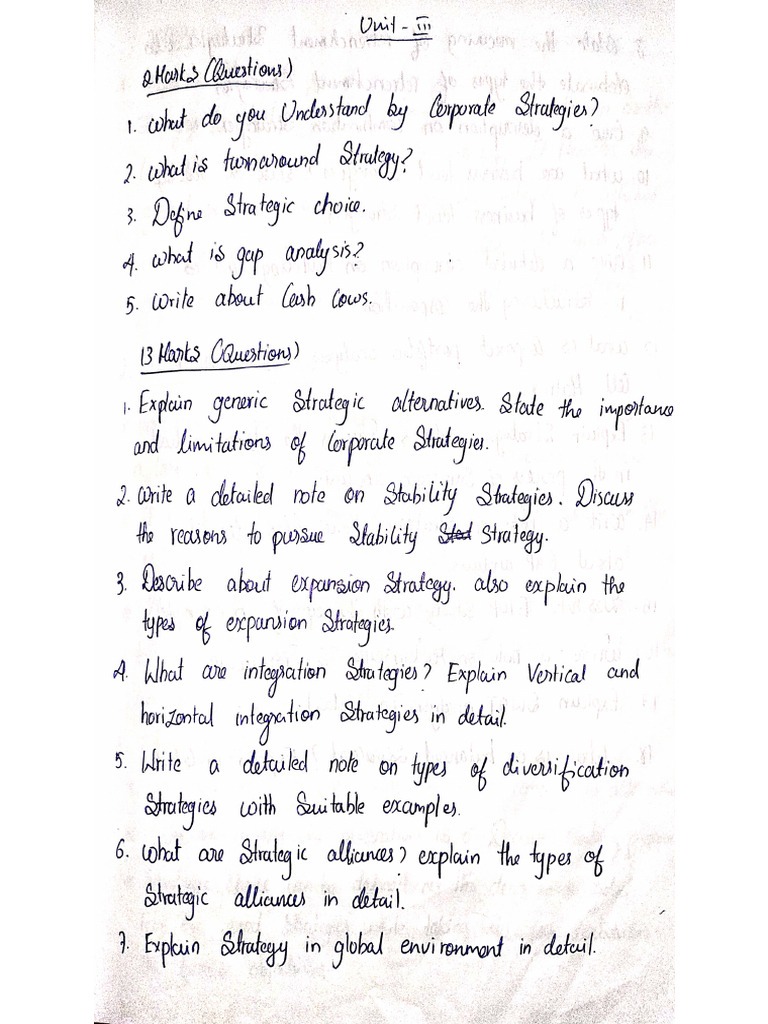 Unit - III
2 Marks (Questions)
1. What do you Understand by Corporate Strategies?
2. What is turnaround Strategy?
3. Define Strategic choice.
4. What is gap analysis?
5. Write about Cash Cows.
13 Marks (Questions)
1. Explain generic Strategic alternatives. State the importance
and limitations of Corporate Strategies.
2. Write a detailed note on Stability Strategies. Discuss
the reasons to pursue Stability Strategy.
3. Describe about expansion Strategy. also explain the
types of expansion Strategies.
4. What are integration Strategies? Explain Vertical and
horizontal integration Strategies in detail.
5. Write a detailed note on types of diversification
Strategies with Suitable examples.
6. What are Strategic alliances? explain the types of
Strategic alliances in detail.
7. Explain Strategy in global environment in detail.